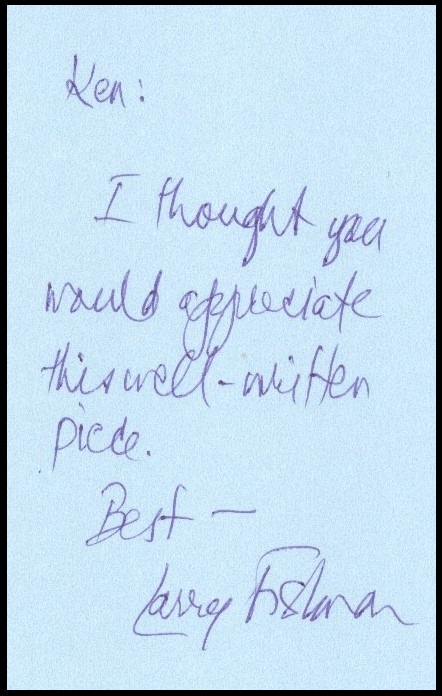 Ken:
I thought you
would appreciate
this well-written
piece.
Best —
Larry Fishman